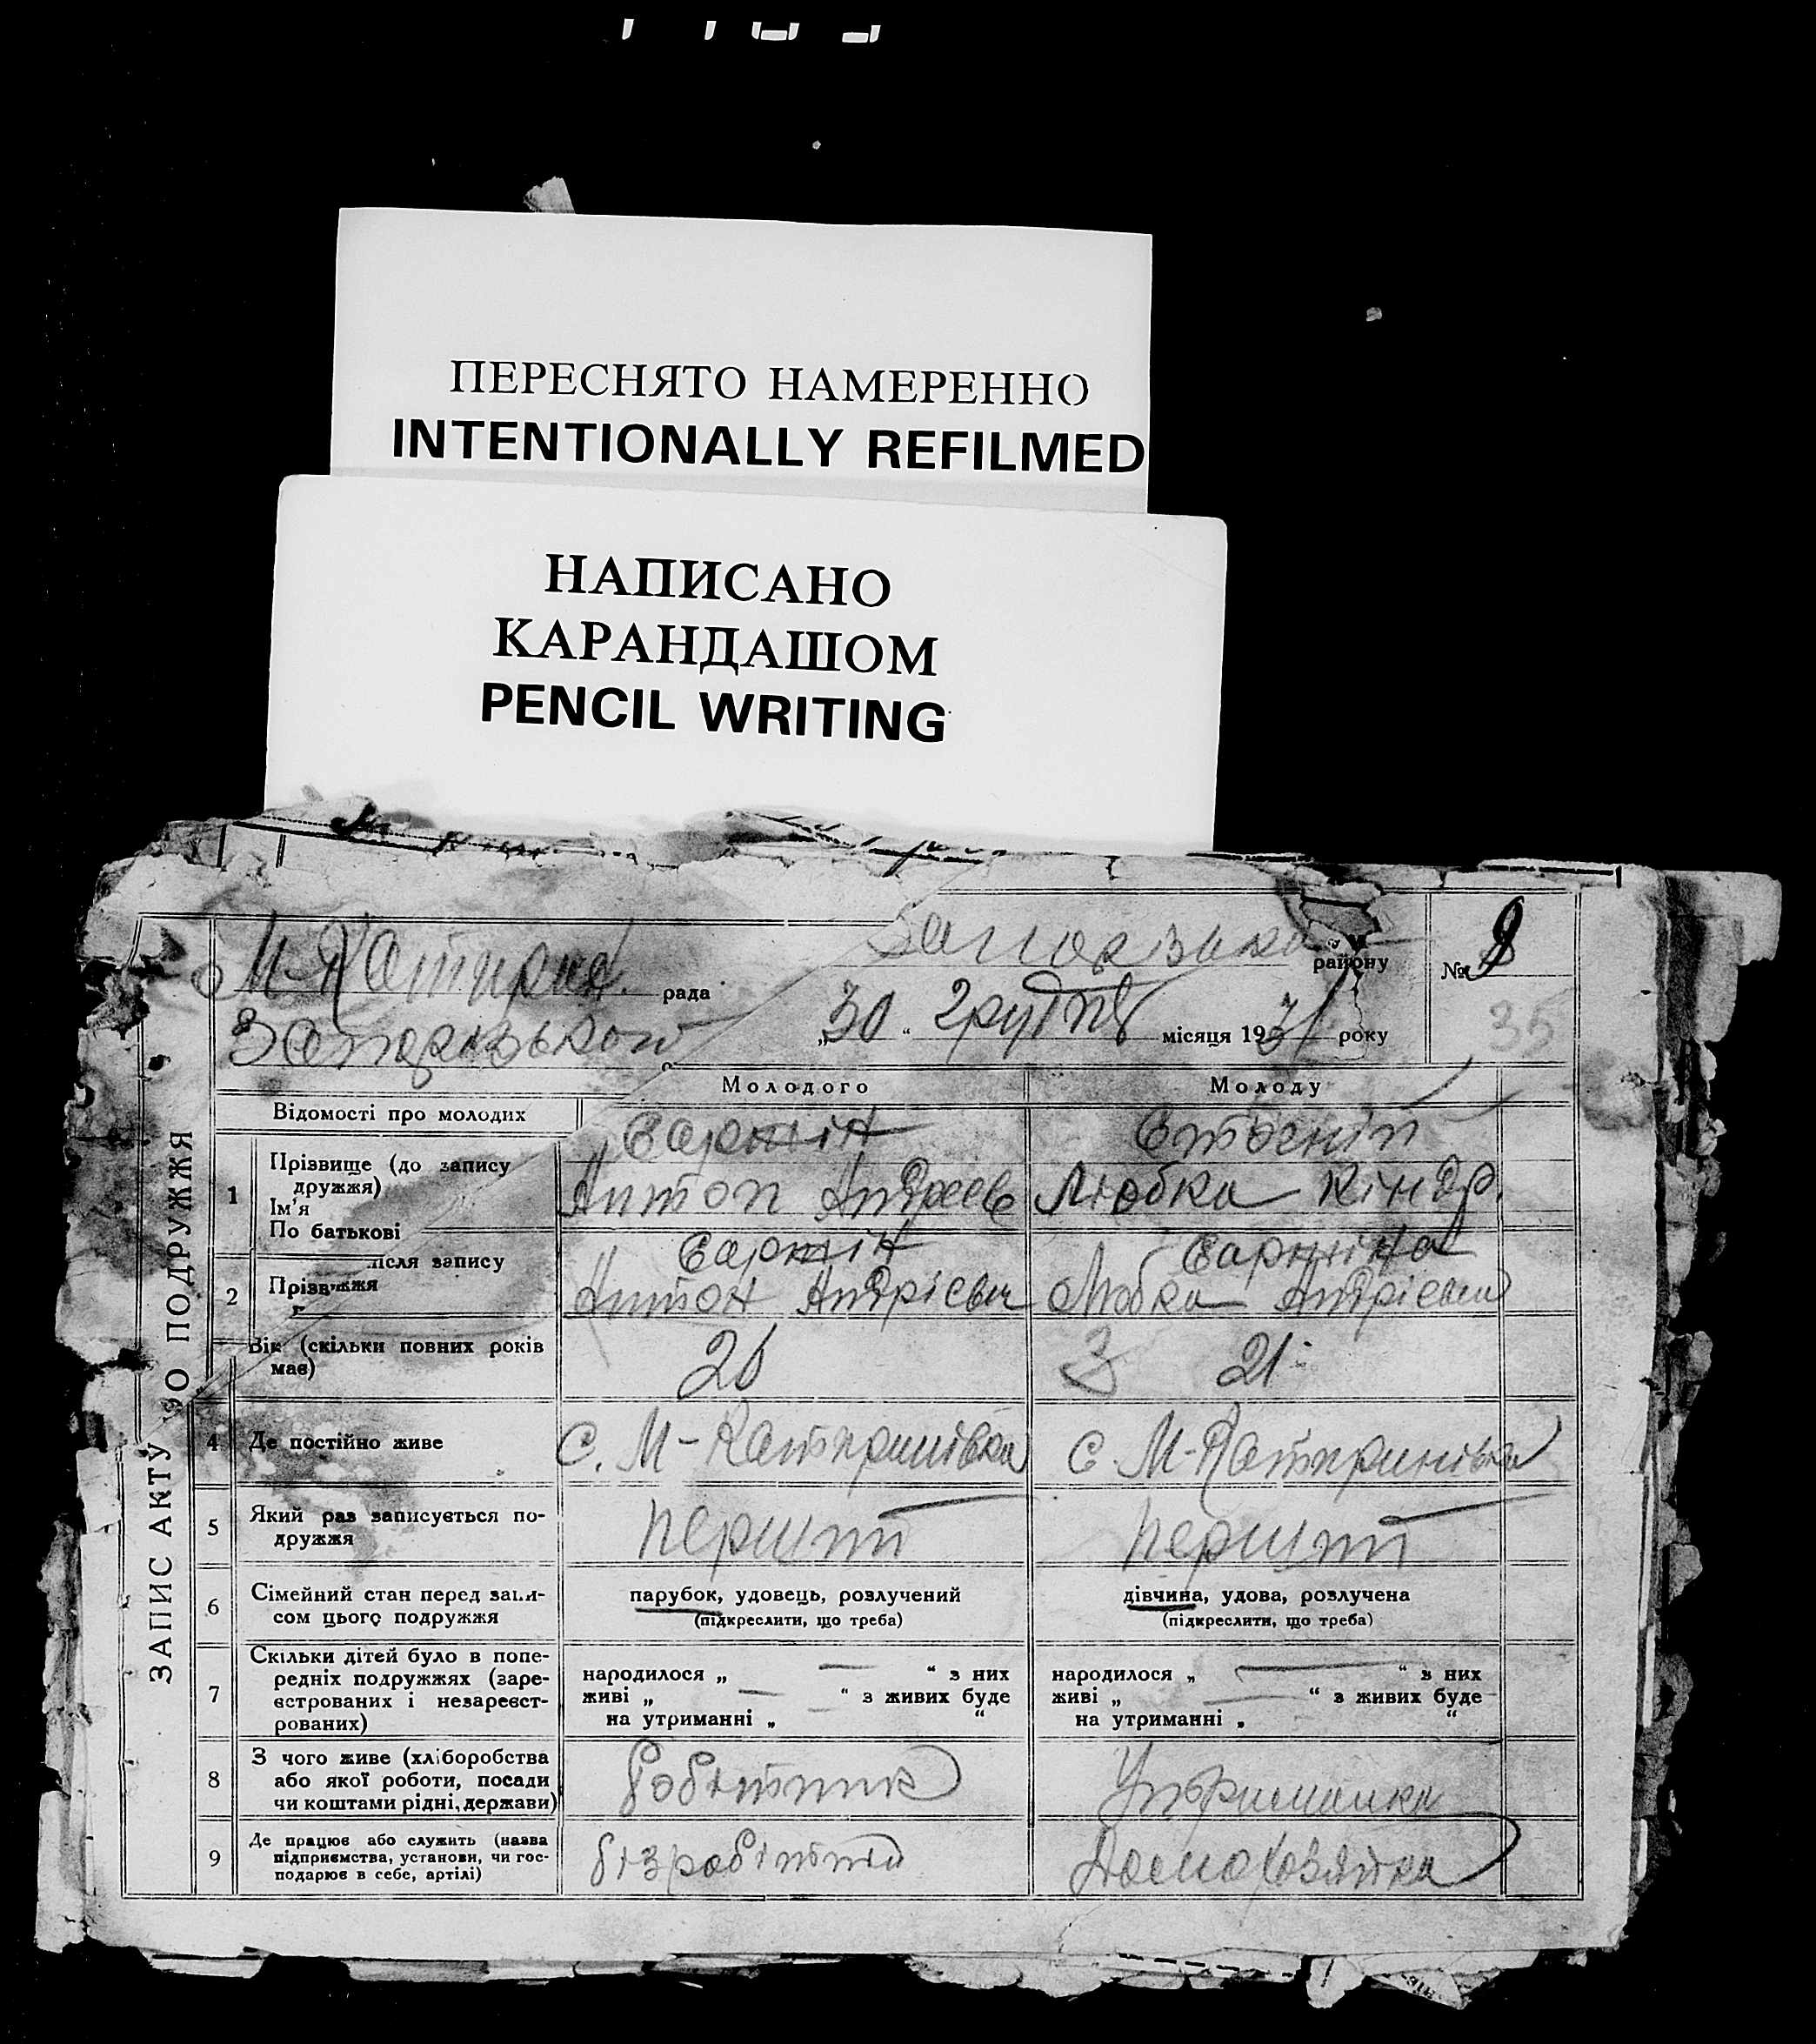 ПЕРЕСНЯТО НАМЕРЕННО
INTENTIONALLY REFILMED
НАПИСАНО
КАРАНДАШОМ
PENCIL WRITING
ЗАПИС АКТУ ПРО ПОДРУЖЖЯ
М-Катирин. рада
району
№ 8
35
„30“ грудня місяця 1931 року
Молодого
Молоду
Відомості про молодих
1
Прізвище (до запису
дружжя)
Ім'я
По батькові
Антон Андрєєв
Любка Кіндр.
2
після запису
Прізв
жжя
Антон Андрієвич
Любка Андрієвна
Вік (скільки повних років
має)
26
3
21
4
Де постійно живе
с. М-Катиринівка
с. М-Катиринівка
5
Який раз записується по-
дружжя
перший
перший
6
Сімейний стан перед запи-
сом цього подружжя
парубок, удовець, розлучений
(підкреслити, що треба)
дівчина, удова, розлучена
(підкреслити, що треба)
7
Скільки дітей було в попе-
редніх подружжях (заре-
єстрованих і незареєст-
рованих)
народилося „ — “ з них
живі „ — “ з живих буде
на утриманні „ “
народилося „ — “ з них
живі „ — “ з живих буде
на утриманні „ “
8
З чого живе (хліборобства
або якої роботи, посади
чи коштами рідні, держави)
Робітник
Утриманка
9
Де працює або служить (назва
підприємства, установи, чи гос-
подарює в себе, артілі)
бізробітний
Домохозяйка